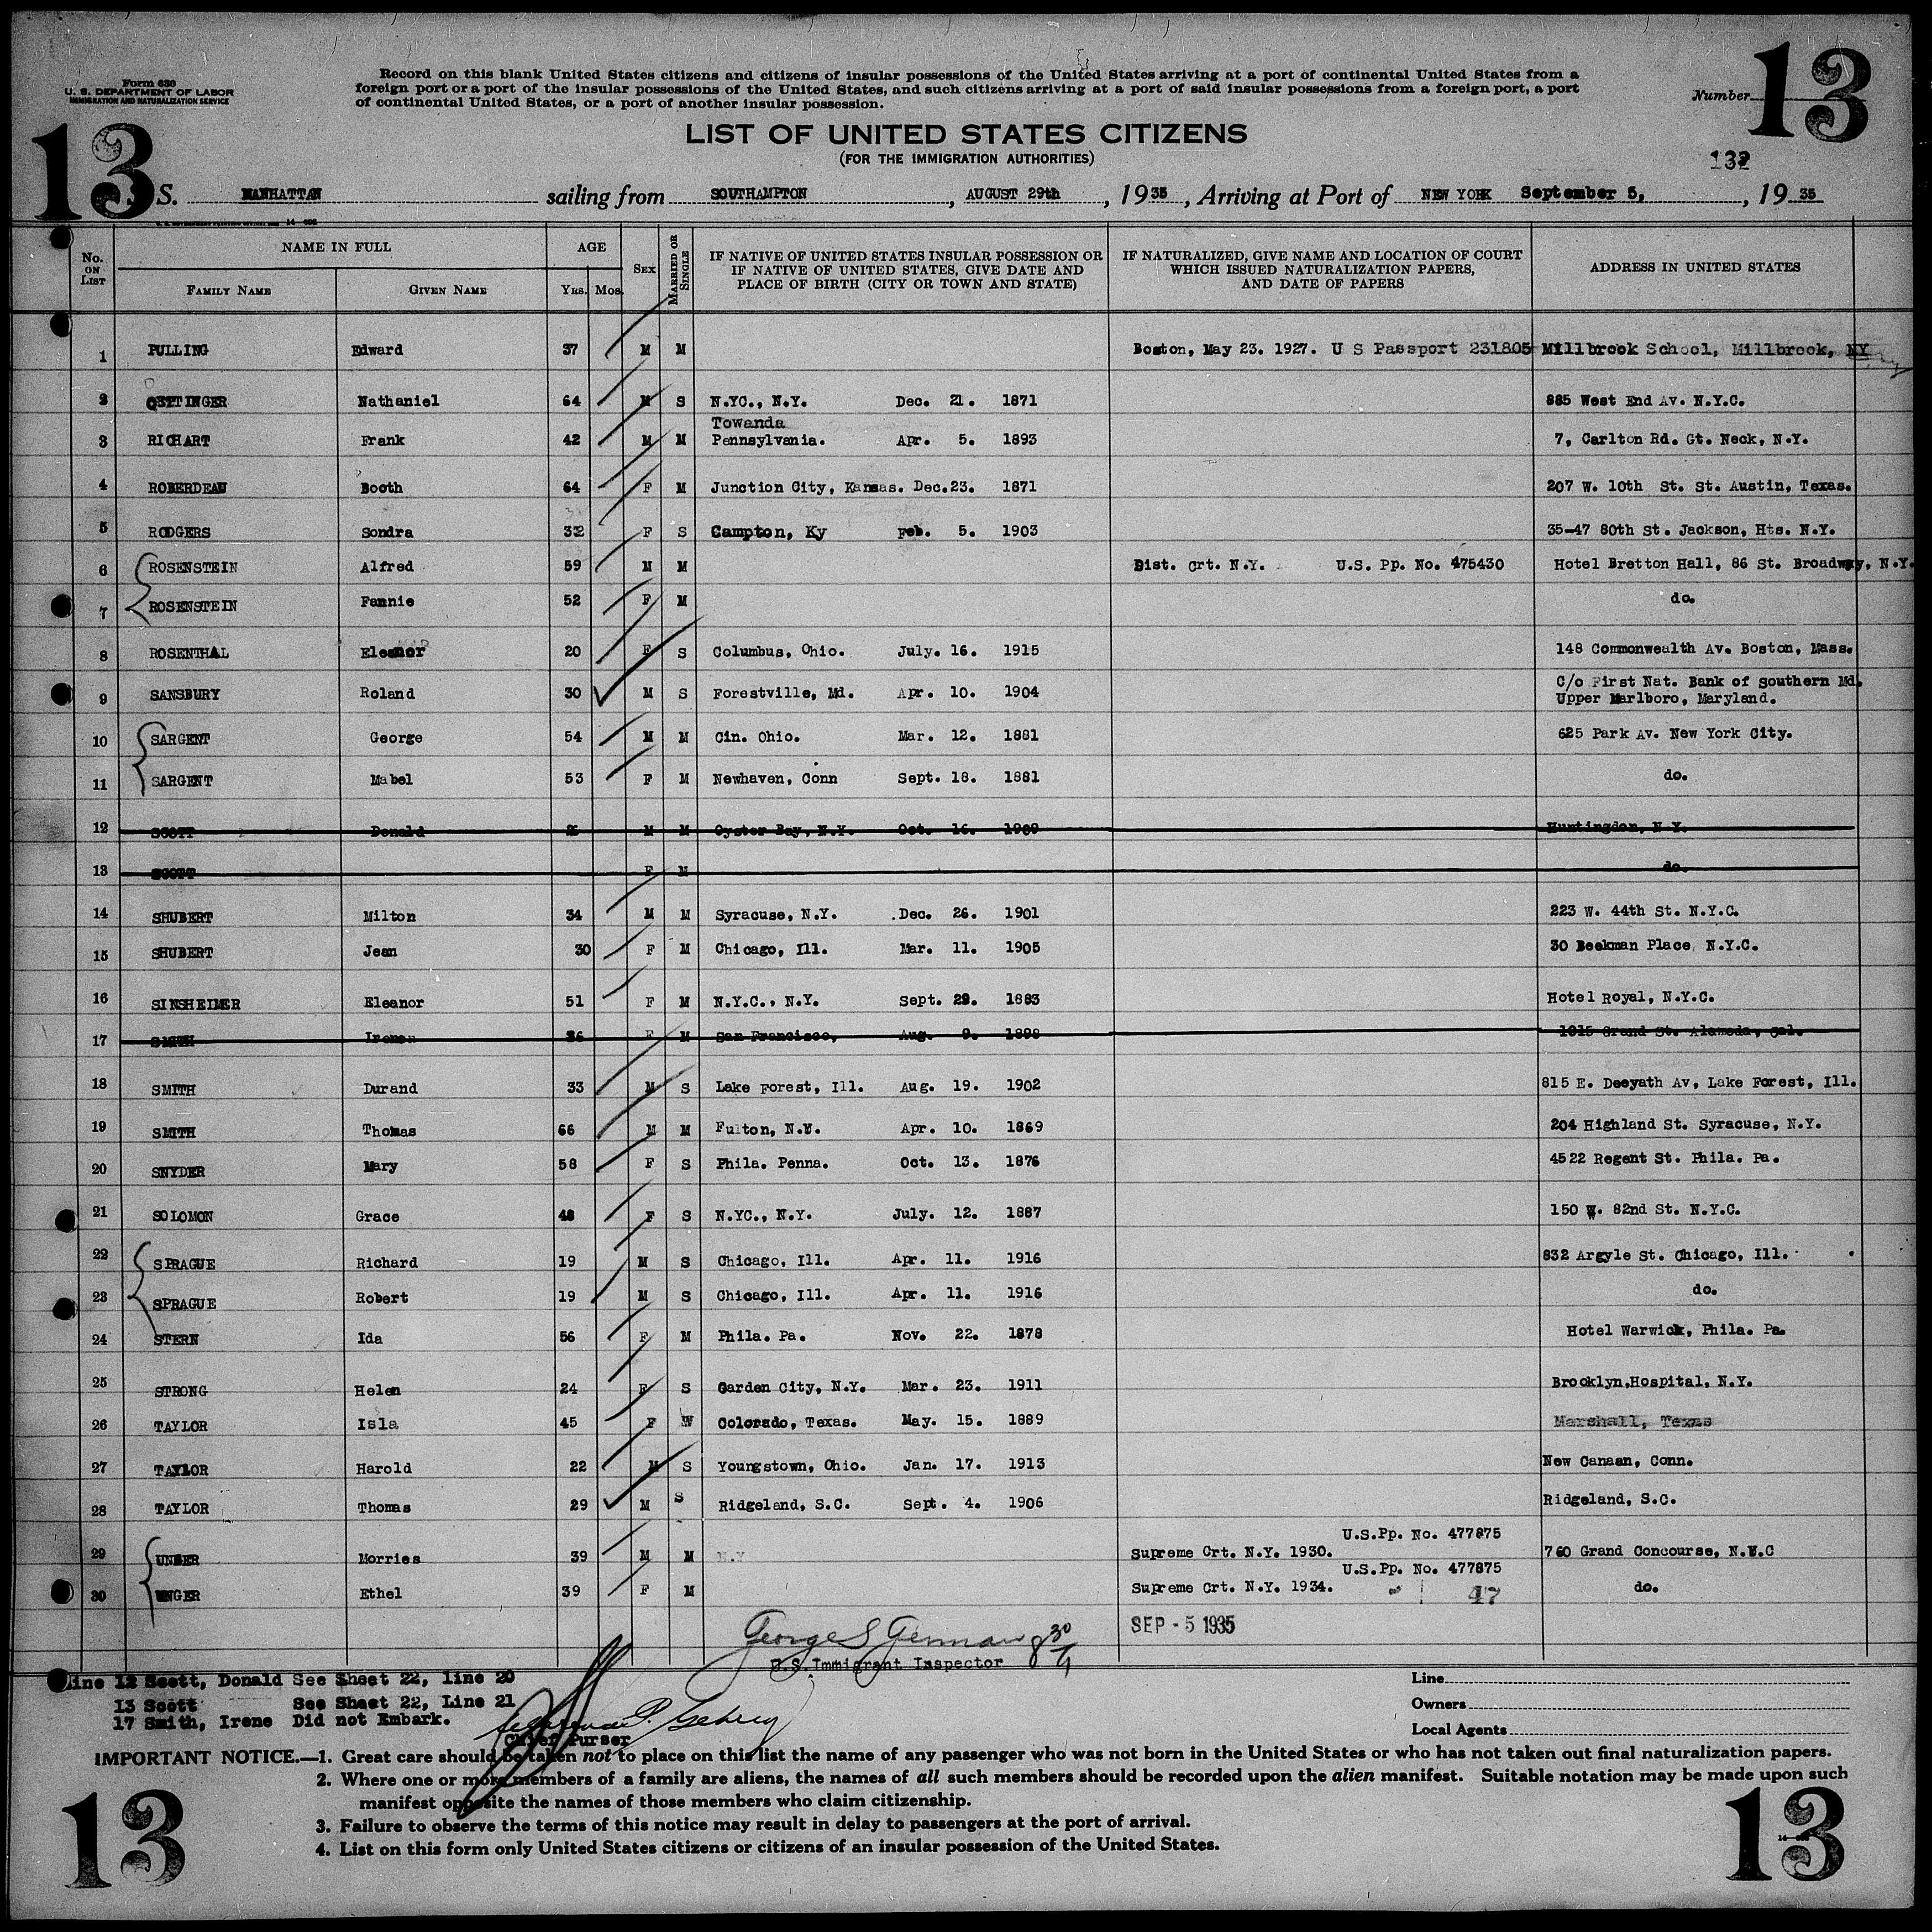 Form 630
U. S. DEPARTMENT OF LABOR
IMMIGRATION AND NATURALIZATION SERVICE
Record on this blank United States citizens and citizens of insular possessions of the United States arriving at a port of continental United States from a
foreign port or a port of the insular possessions of the United States, and such citizens arriving at a port of said insular possessions from a foreign port, a port
of continental United States, or a port of another insular possession.
Number 13
13
LIST OF UNITED STATES CITIZENS
(FOR THE IMMIGRATION AUTHORITIES)
132
S. MANHATTAN sailing from SOUTHAMPTON, AUGUST 29th, 1935, Arriving at Port of NEW YORK September 5, 1935
No. ON LIST NAME IN FULL FAMILY NAME GIVEN NAME AGE YRS. MOS. SEX MARRIED OR SINGLE
IF NATIVE OF UNITED STATES INSULAR POSSESSION OR IF NATIVE OF UNITED STATES, GIVE DATE AND PLACE OF BIRTH (CITY OR TOWN AND STATE)
IF NATURALIZED, GIVE NAME AND LOCATION OF COURT WHICH ISSUED NATURALIZATION PAPERS, AND DATE OF PAPERS
ADDRESS IN UNITED STATES
1 PULLING Edward 37 M M Boston, May 23. 1927. U S Passport 231805 Millbrook School, Millbrook, NY
2 OETTINGER Nathaniel 64 M S N.YC., N.Y. Dec. 21. 1871 885 West End Av. N.Y.C.
3 RICHART Frank 42 M M Towanda Pennsylvania. Apr. 5. 1893 7, Carlton Rd. Gt. Neck, N.Y.
4 ROBERDEAU Booth 64 F M Junction City, Kansas. Dec.23. 1871 207 W. 10th St. St. Austin, Texas.
5 RODGERS Sondra 32 F S Campton, Ky Feb. 5. 1903 35-47 80th St. Jackson, Hts. N.Y.
6 ROSENSTEIN Alfred 59 M M Dist. Crt. N.Y. U.S. Pp. No. 475430 Hotel Bretton Hall, 86 St. Broadway, N.Y.
7 ROSENSTEIN Fannie 52 F M do.
8 ROSENTHAL Eleanor 20 F S Columbus, Ohio. July. 16. 1915 148 Commonwealth Av. Boston, Mass.
9 SANSBURY Roland 30 M S Forestville, Md. Apr. 10. 1904 C/o First Nat. Bank of southern Md. Upper Marlboro, Maryland.
10 SARGENT George 54 M M Cin. Ohio. Mar. 12. 1881 625 Park Av. New York City.
11 SARGENT Mabel 53 F M Newhaven, Conn Sept. 18. 1881 do.
12 SCOTT Donald M M Oyster Bay, N.Y. Oct. 16. 1909 Huntingdon, N.Y.
13 SCOTT F M do.
14 SHUBERT Milton 34 M M Syracuse, N.Y. Dec. 26. 1901 223 W. 44th St. N.Y.C.
15 SHUBERT Jean 30 F M Chicago, Ill. Mar. 11. 1905 30 Beekman Place, N.Y.C.
16 SINSHEIMER Eleanor 51 F M N.Y.C., N.Y. Sept. 29. 1883 Hotel Royal, N.Y.C.
17 SMITH Irene 36 F M San Francisco, Aug. 9. 1898 1815 Grand St. Alameda, Cal.
18 SMITH Durand 33 M S Lake Forest, Ill. Aug. 19. 1902 815 E. Deeyath Av, Lake Forest, Ill.
19 SMITH Thomas 66 M M Fulton, N.Y. Apr. 10. 1869 204 Highland St. Syracuse, N.Y.
20 SNYDER Mary 58 F S Phila. Penna. Oct. 13. 1876 4522 Regent St. Phila. Pa.
21 SOLOMON Grace 48 F S N.YC., N.Y. July. 12. 1887 150 W. 82nd St. N.Y.C.
22 SPRAGUE Richard 19 M S Chicago, Ill. Apr. 11. 1916 832 Argyle St. Chicago, Ill.
23 SPRAGUE Robert 19 M S Chicago, Ill. Apr. 11. 1916 do.
24 STERN Ida 56 F M Phila. Pa. Nov. 22. 1878 Hotel Warwick, Phila. Pa.
25 STRONG Helen 24 F S Garden City, N.Y. Mar. 23. 1911 Brooklyn,Hospital, N.Y.
26 TAYLOR Isla 45 F W Colorado, Texas. May. 15. 1889 Marshall, Texas
27 TAYLOR Harold 22 M S Youngstown, Ohio. Jan. 17. 1913 New Canaan, Conn.
28 TAYLOR Thomas 29 M S Ridgeland, S.C. Sept. 4. 1906 Ridgeland, S.C.
29 UNGER Morries 39 M M N.Y Supreme Crt. N.Y. 1930. U.S.Pp. No. 477875 760 Grand Concourse, N.Y.C
30 UNGER Ethel 39 F M Supreme Crt. N.Y. 1934. U.S.Pp. No. 477875 do.
47
SEP - 5 1935
George S German 8 30/11
U.S. Immigrant Inspector
Line 12 Scott, Donald See Sheet 22, line 20
13 Scott See Sheet 22, Line 21
17 Smith, Irene Did not Embark.
Chief Purser
Line
Owners
Local Agents
IMPORTANT NOTICE.—1. Great care should be taken not to place on this list the name of any passenger who was not born in the United States or who has not taken out final naturalization papers.
2. Where one or more members of a family are aliens, the names of all such members should be recorded upon the alien manifest. Suitable notation may be made upon such
manifest opposite the names of those members who claim citizenship.
3. Failure to observe the terms of this notice may result in delay to passengers at the port of arrival.
4. List on this form only United States citizens or citizens of an insular possession of the United States.
13
13